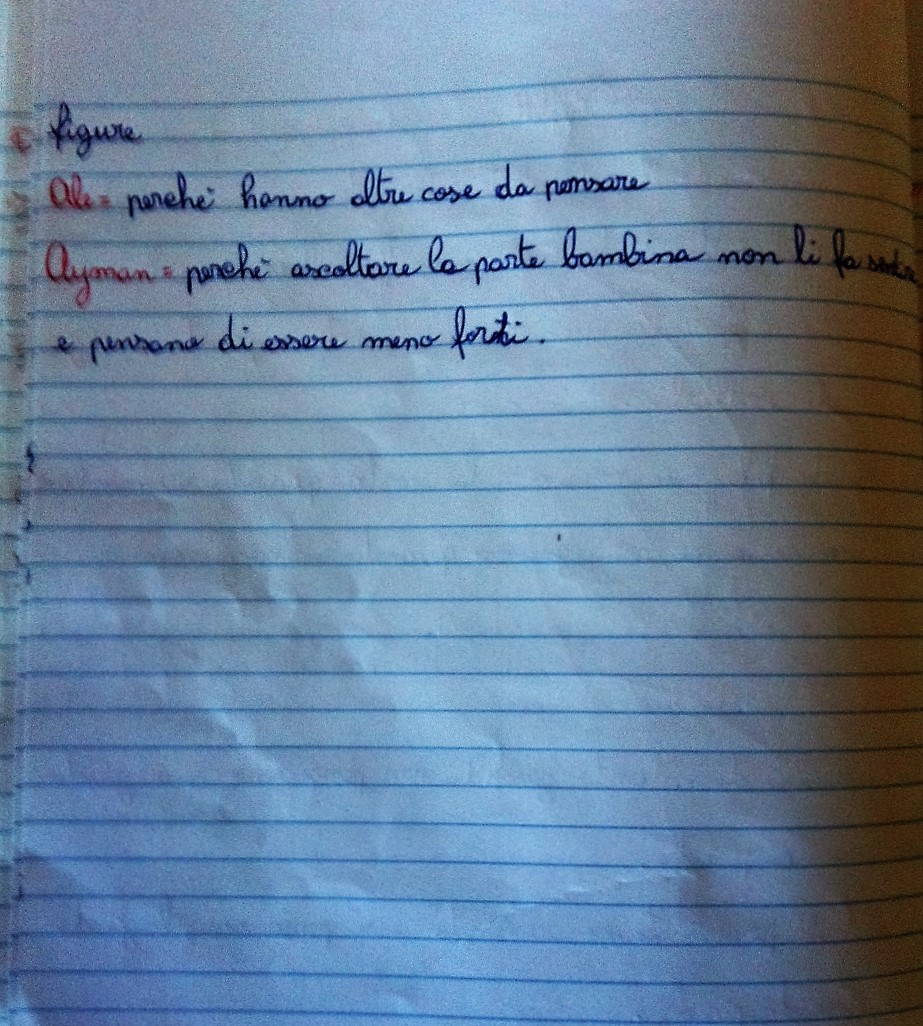 figure
Ale = perchè hanno altre cose da pensare
Ayman = perchè ascoltare la parte bambina non li fa
e pensano di essere meno forti.